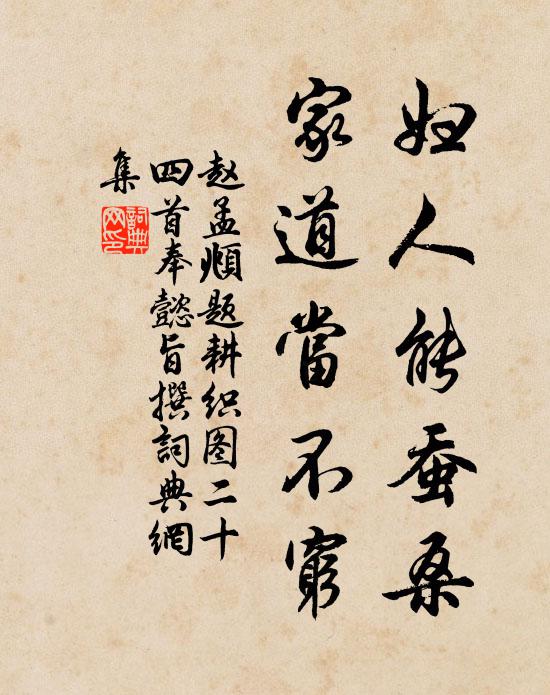 妇人能蚕桑
家道當不窮
赵孟頫题耕织图二十
四首奉懿旨撰詞典網
集
詞典
网印